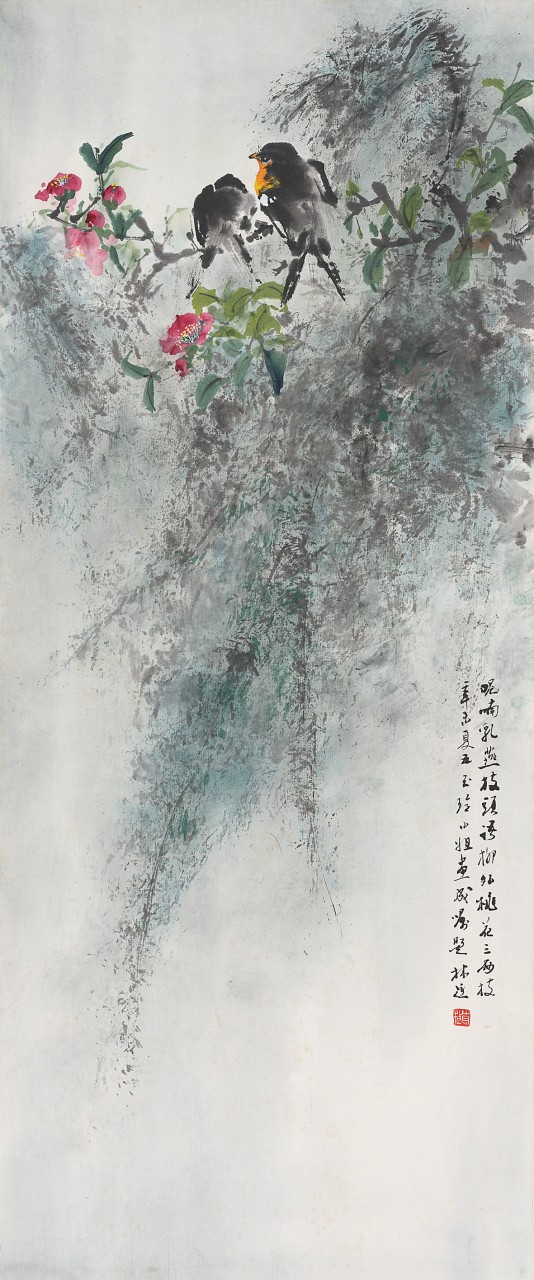 呢喃乳燕枝頭語柳外桃花三兩枝
辛未夏五玉玲小姐畫成屬題林逗